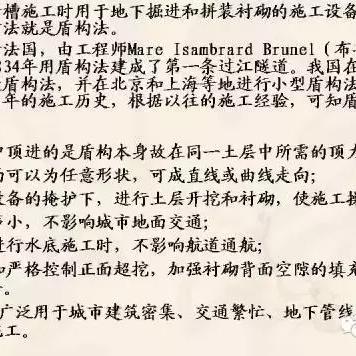 槽施工时用于地下掘进和拼装衬砌的施工设备
法就是盾构法。
法国，由工程师Mare Isambrard Brunel（布
34年用盾构法建成了第一条过江隧道。我国在
盾构法，并在北京和上海等地进行小型盾构法
年的施工历史，根据以往的施工经验，可知盾
中顶进的是盾构本身故在同一土层中所需的顶
可以为任意形状，可成直线或曲线走向；
设备的掩护下，进行土层开挖和衬砌，使施工操
小，不影响城市地面交通；
进行水底施工时，不影响航道通航；
严格控制正面超挖，加强衬砌背面空隙的填充
广泛用于城市建筑密集、交通繁忙、地下管线
工。